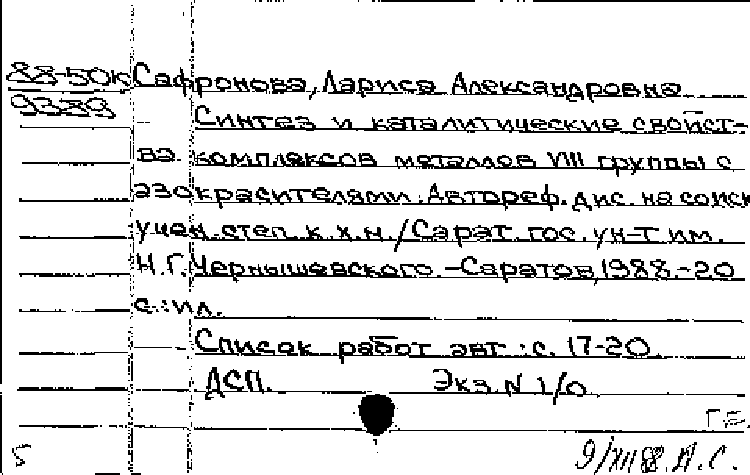 88-50к Сафронова, Лариса Александровна
9389 Синтез и каталитические свойст-
ва комплексов металлов VIII группы с
азокрасителями. Автореф. дис. на соиск
учен. степ. к. х. н. / Сарат. гос. ун-т им.
Н. Г. Чернышевского. - Саратов, 1988. - 20
с.: ил.
Список работ авт.: с. 17-20
ДСП. Экз. N 1/0
Г.Е.
5